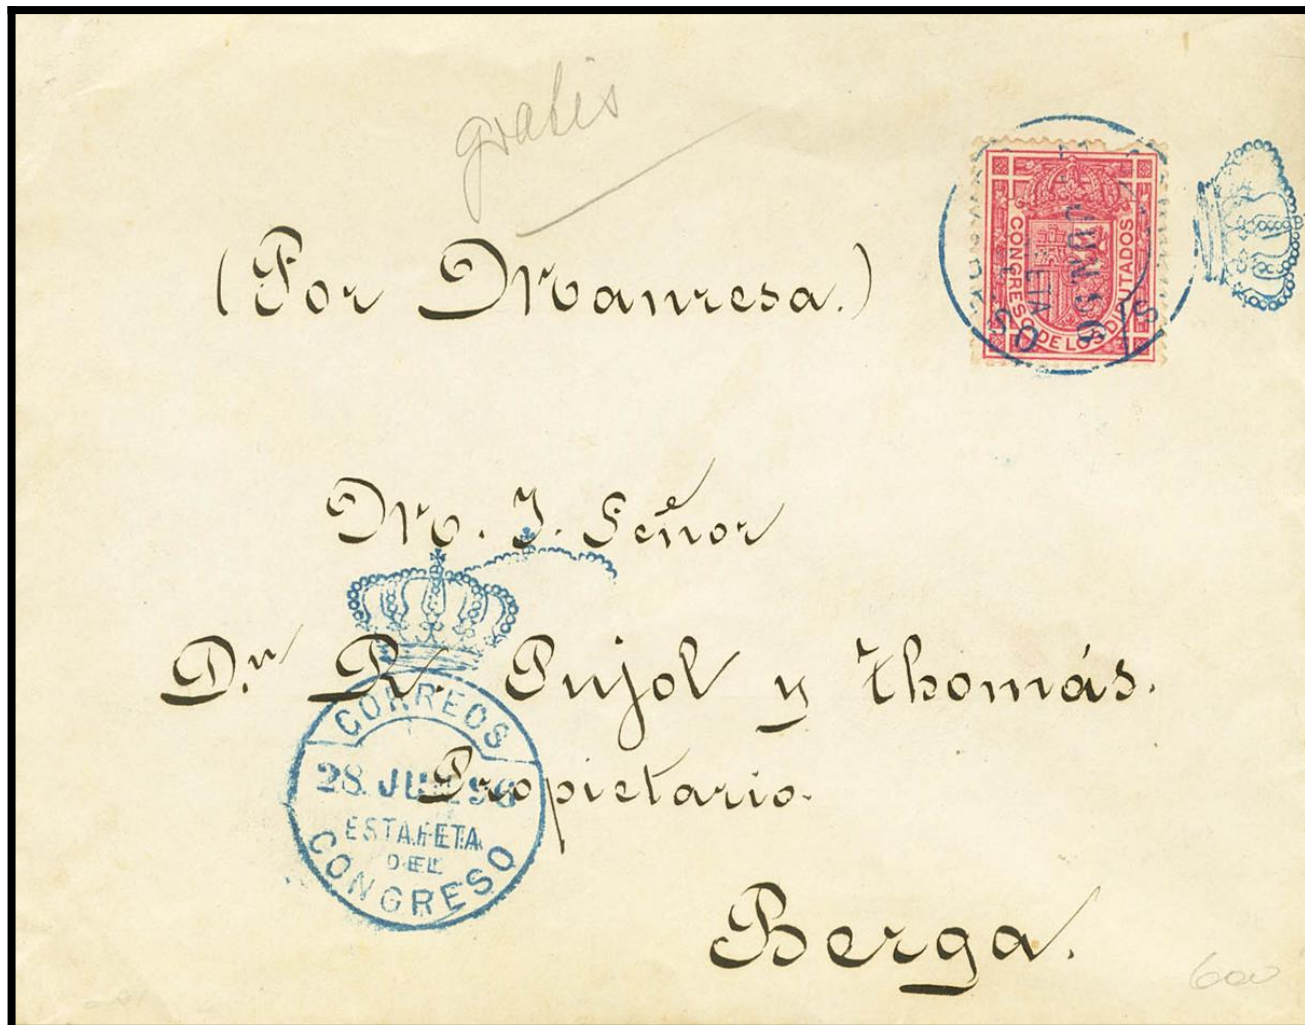 gratis
(Por Manresa.)
CONGRESO DE LOS DIPUTADOS
M. I. Señor
Dn R. Pujol y Thomás.
Propietario.
Berga.
CORREOS
28 JU 96
ESTAFETA
DEL
CONGRESO
600